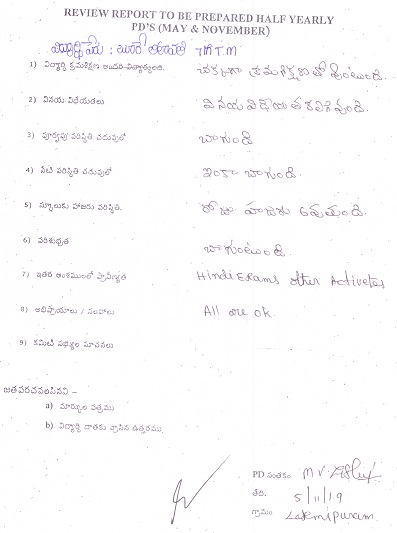 REVIEW REPORT TO BE PREPARED HALF YEARLY
PD'S (MAY & NOVEMBER)
విద్యార్థి పేరు : 7TH TM
1) విద్యార్థి క్రమశిక్షణ అందరి-విద్యార్థులతో. చక్కగా క్రమశిక్షణతో వుంటుంది.
2) వినయ విధేయతలు వినయ విధేయత కలిగివుంది.
3) పూర్వపు పరిస్థితి చదువులో బాగుంది
4) నేటి పరిస్థితి చదువులో ఇంకా బాగుంది.
5) స్కూలుకు హాజరు పరిస్థితి. రోజు హాజరు అవుతుంది.
6) పరిశుభ్రత బాగుంటుంది.
7) ఇతర అంశములలో ప్రావీణ్యత Hindi Exams other Activetes
8) అభిప్రాయాలు / సలహాలు All are ok.
9) కమిటీ సభ్యుల సూచనలు
జతపరచవలసినవి –
a) మార్కుల పత్రము
b) విద్యార్థి దాతకు వ్రాసిన ఉత్తరము.
PD సంతకం M V.
తేది. 5/11/19
గ్రామం Laxmipuram.